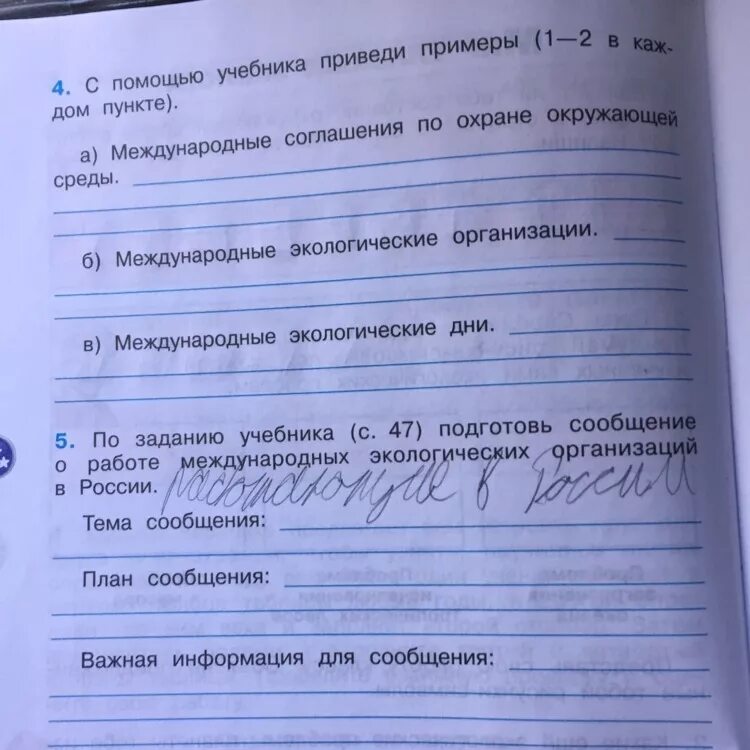 4. С помощью учебника приведи примеры (1—2 в каж-
дом пункте).
а) Международные соглашения по охране окружающей
среды.
б) Международные экологические организации.
в) Международные экологические дни.
5. По заданию учебника (с. 47) подготовь сообщение
о работе международных экологических организаций
в России. работающие в России
Тема сообщения:
План сообщения:
Важная информация для сообщения: